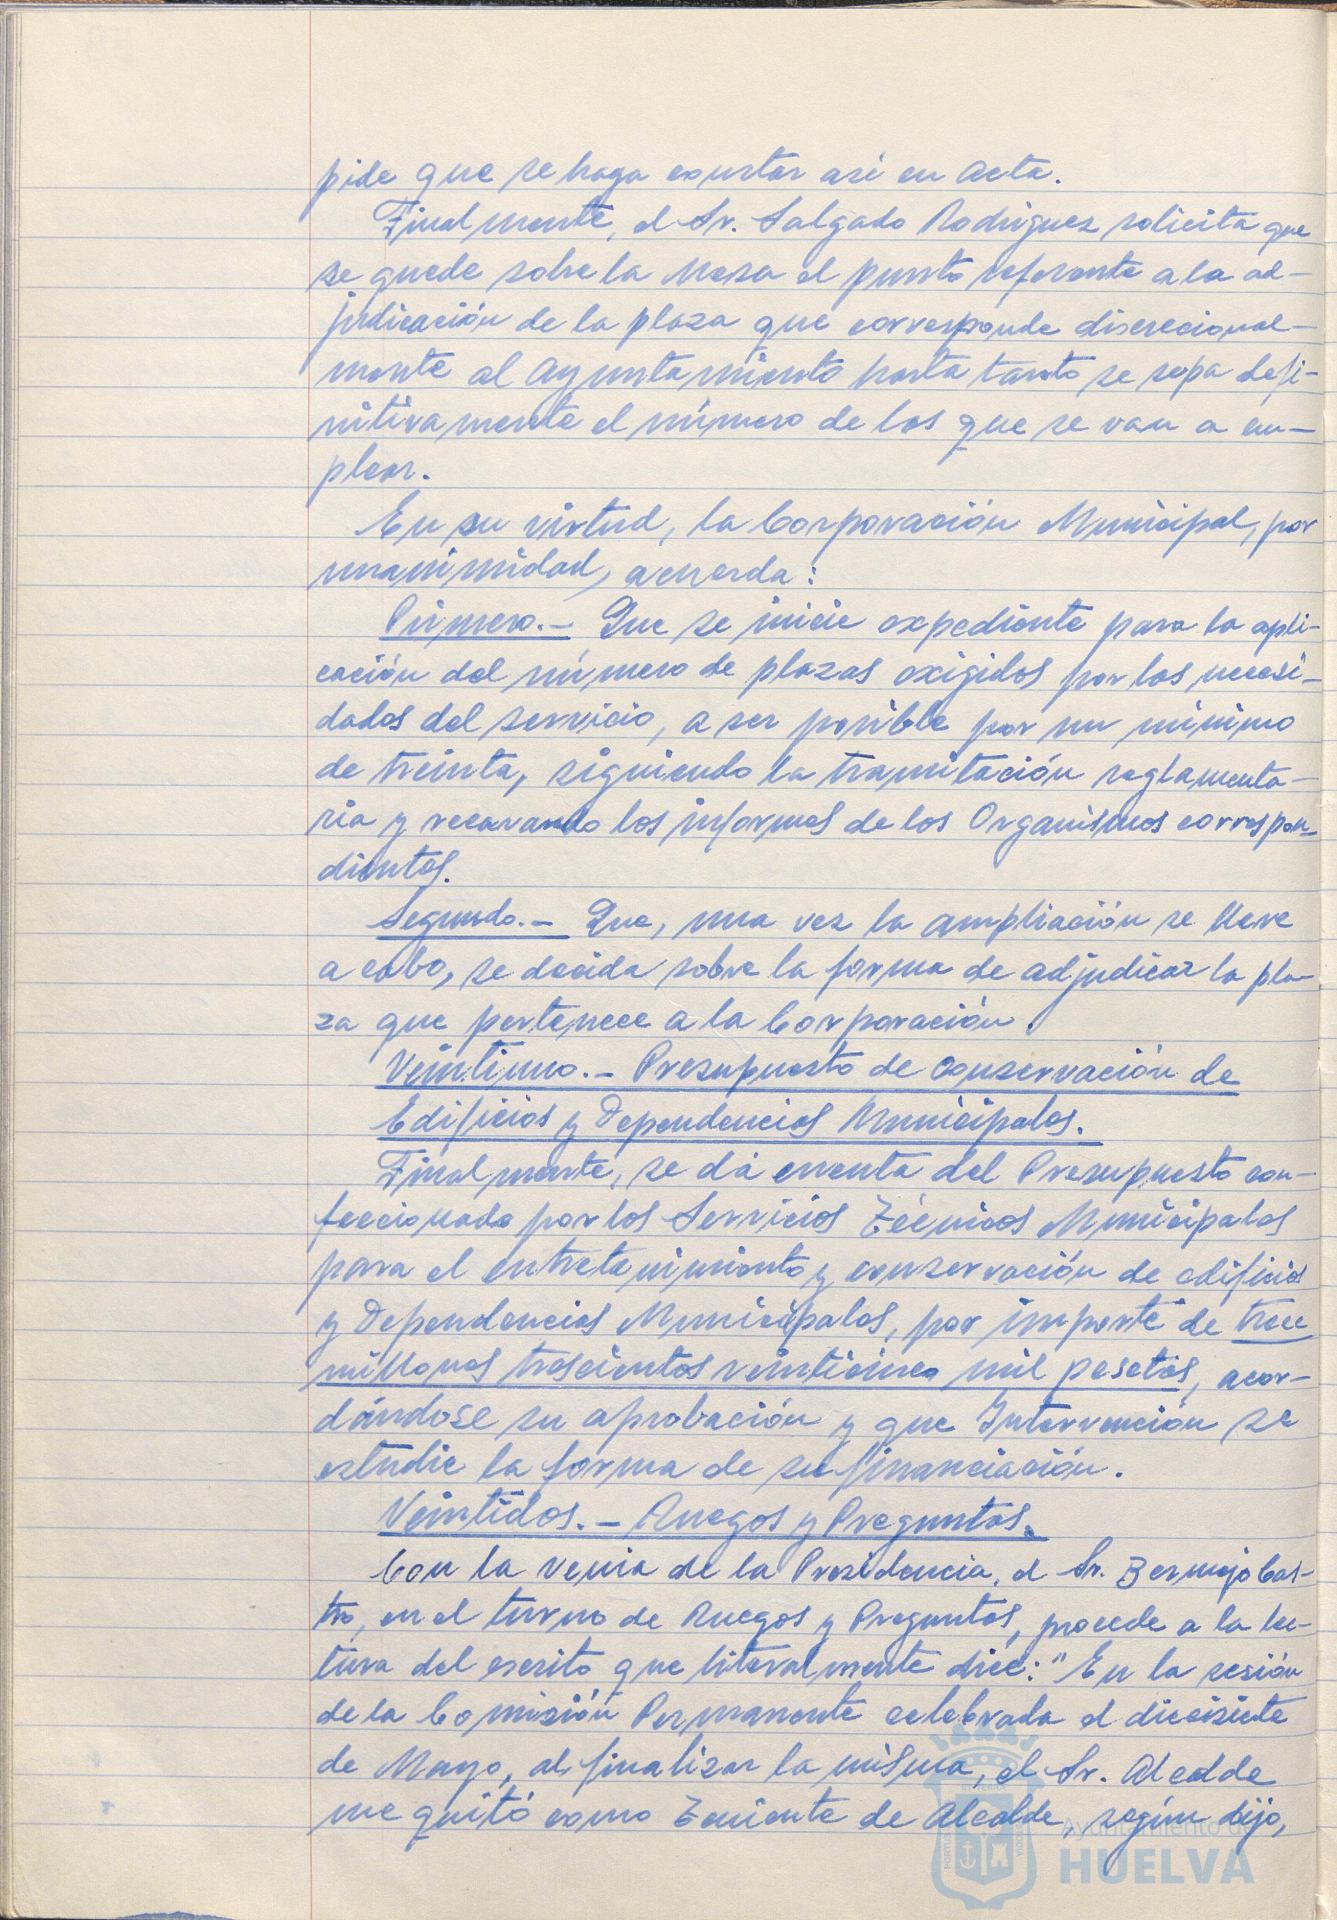 pide que se haga constar así en acta.
Finalmente, el Sr. Salgado Rodríguez solicita que
se quede sobre la Mesa el punto referente a la ad-
judicación de la plaza que corresponde discrecional-
mente al Ayuntamiento hasta tanto se sepa defi-
nitivamente el número de los que se van a em-
plear.
En su virtud, la Corporación Municipal, por
unanimidad, acuerda:
Primero.- Que se inicie expediente para la apli-
cación del número de plazas exigidos por las necesi-
dades del servicio, a ser posible por un mínimo
de treinta, siguiendo la tramitación reglamenta-
ria y recavando los informes de los Organismos correspon-
dientes.
Segundo.- Que, una vez la ampliación se lleve
a cabo, se decida sobre la forma de adjudicar la pla-
za que pertenece a la Corporación.
Veintiuno.- Presupuesto de conservación de
Edificios y Dependencias Municipales.
Finalmente, se dá cuenta del Presupuesto con-
feccionado por los Servicios Técnicos Municipales
para el entretenimiento y conservación de edificios
y Dependencias Municipales, por importe de trece
millones trescientos veinticinco mil pesetas, acor-
dándose su aprobación y que Intervención se
estudie la forma de su financiación.
Veintidos.- Ruegos y Preguntas.
Con la venia de la Presidencia, el Sr. Bermejo Cas-
tro, en el turno de Ruegos y Preguntas, procede a la lec-
tura del escrito que literalmente dice: "En la sesión
de la Comisión Permanente celebrada el diecisiete
de Mayo, al finalizar la misma, el Sr. Alcalde
me quitó como Teniente de Alcalde, según dijo,
Ayuntamiento de
HUELVA